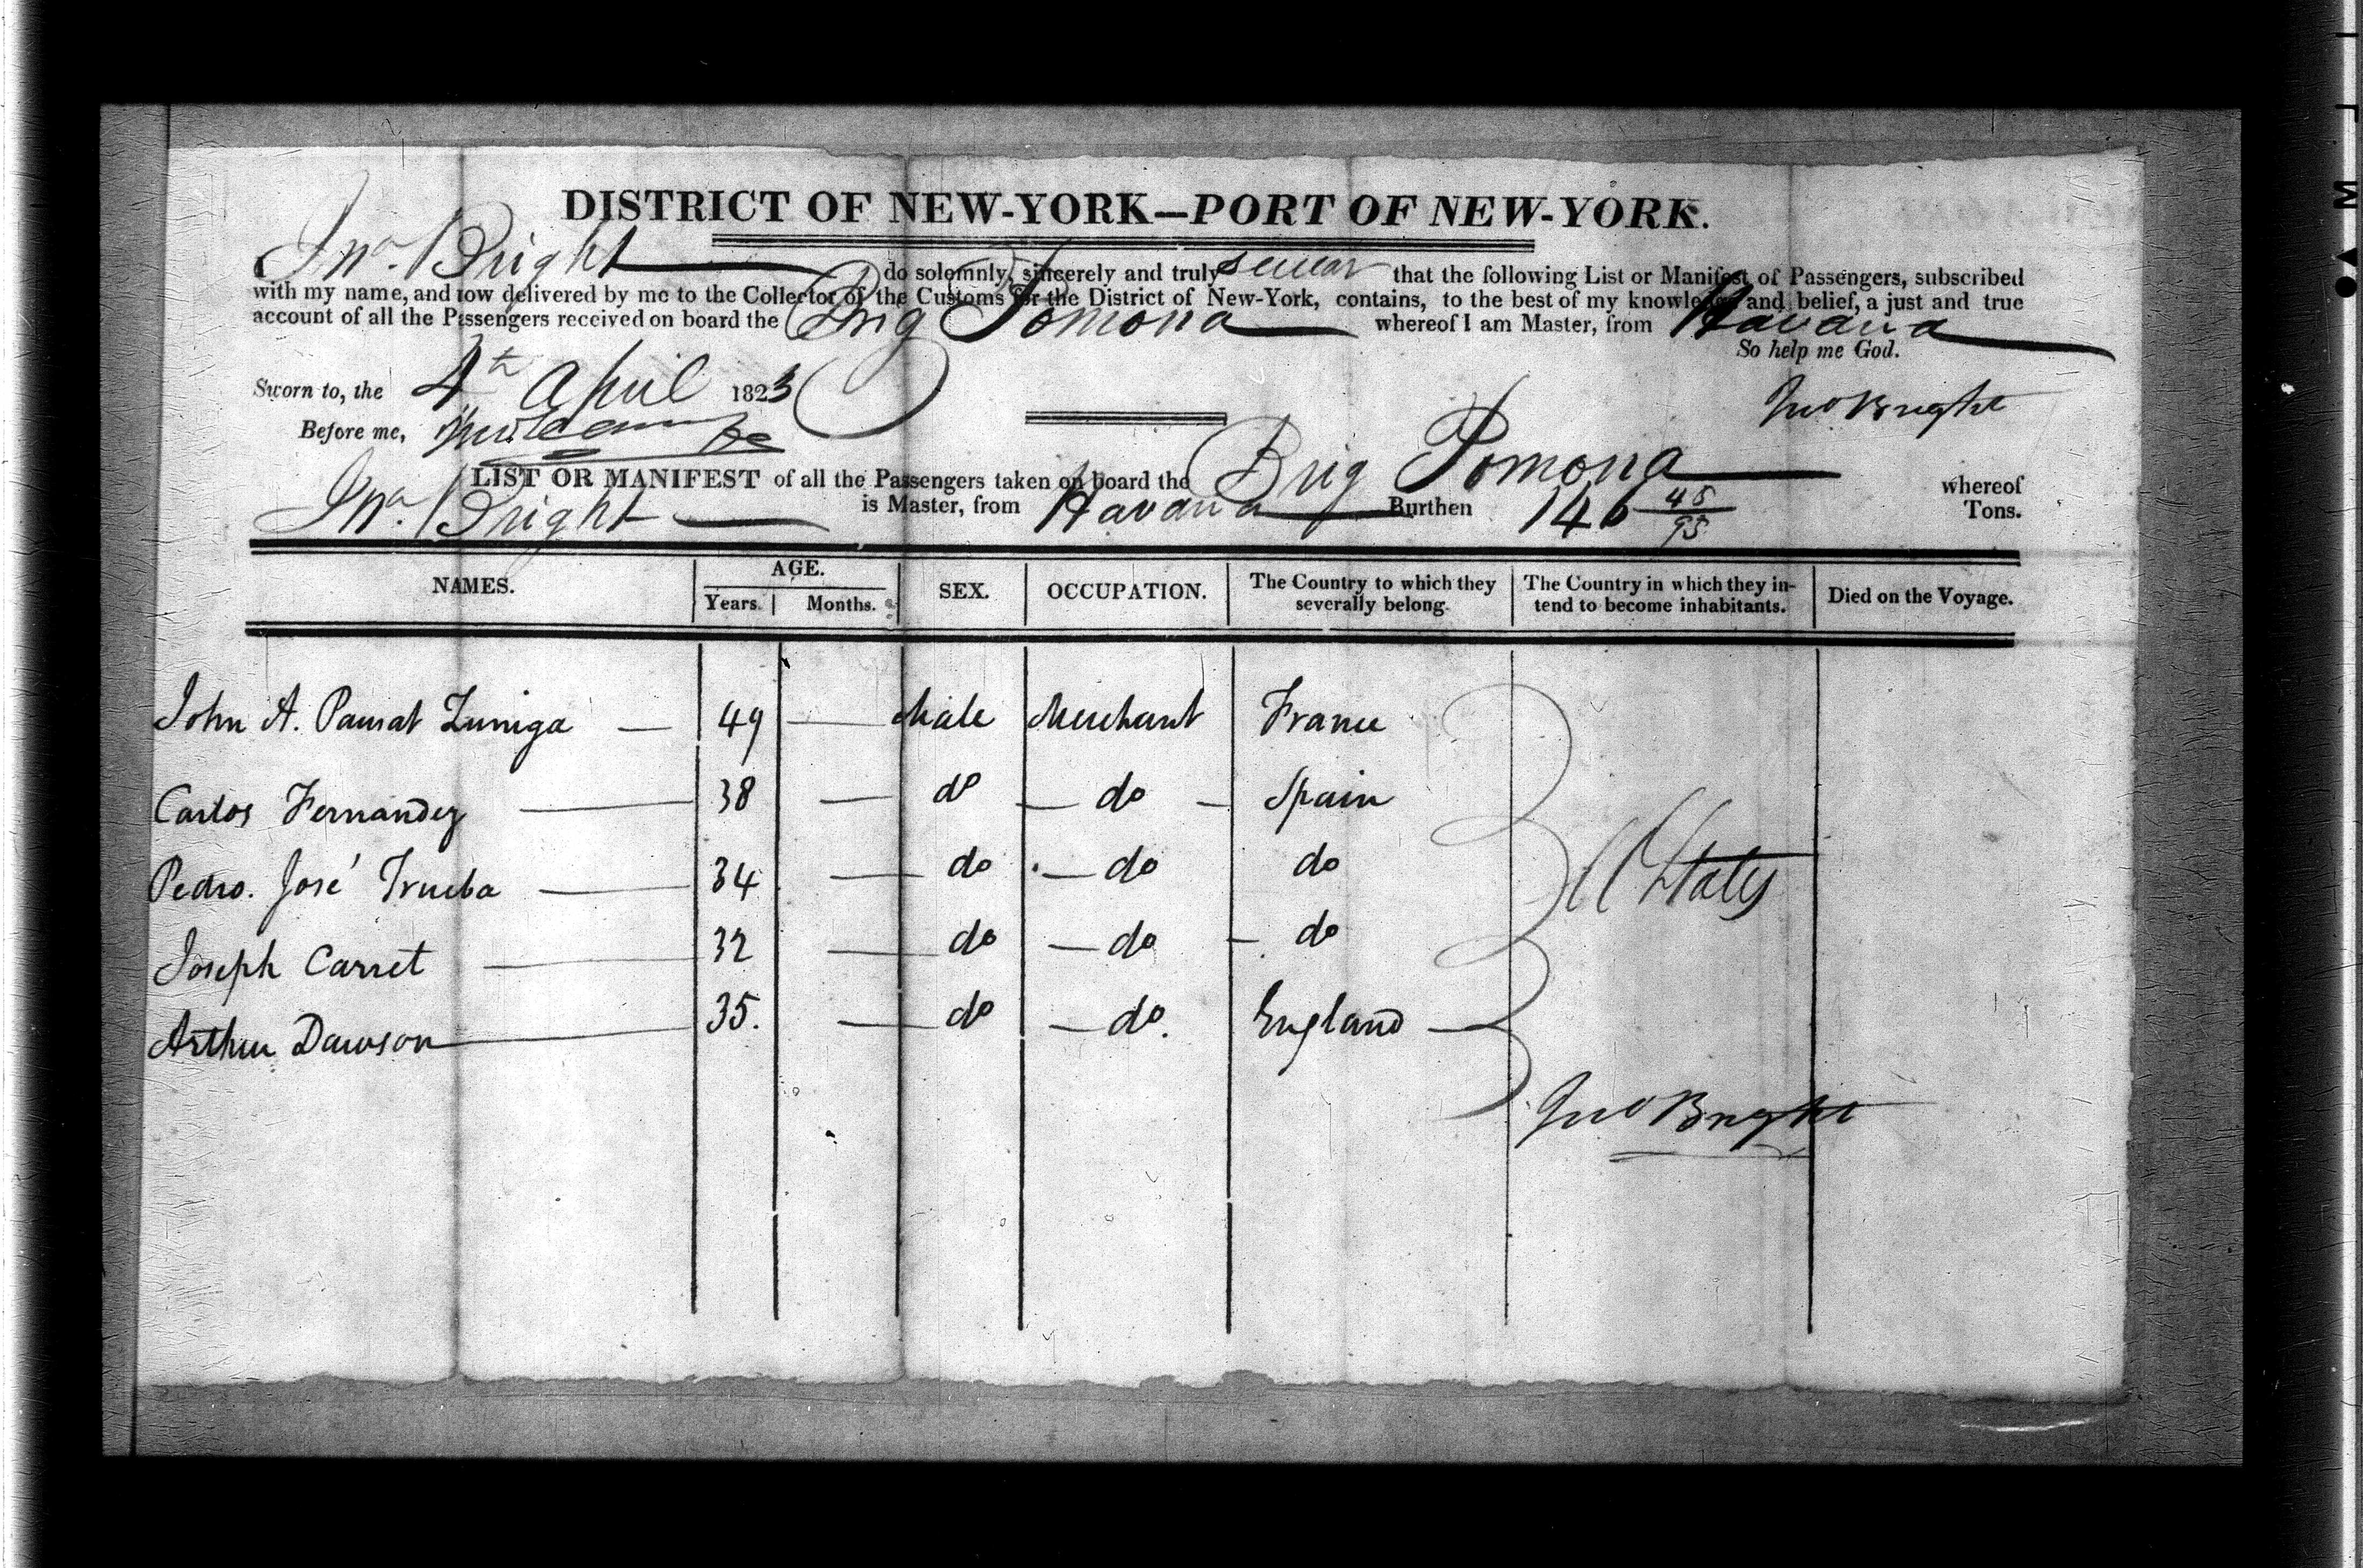 DISTRICT OF NEW-YORK—PORT OF NEW-YORK.
I Jno. Bright do solemnly, sincerely and truly swear that the following List or Manifest of Passengers, subscribed
with my name, and now delivered by me to the Collector of the Customs for the District of New-York, contains, to the best of my knowledge and belief, a just and true
account of all the Passengers received on board the Brig Pomona whereof I am Master, from Havana
So help me God.
Sworn to, the 4th April 1823
Jno Bright
Before me,
LIST OR MANIFEST of all the Passengers taken on board the Brig Pomona whereof
Jno. Bright is Master, from Havana Burthen 146 48/95 Tons.
NAMES. AGE. Years. Months. SEX. OCCUPATION. The Country to which they severally belong. The Country in which they intend to become inhabitants. Died on the Voyage.
John A. Zuniga — 49 — Male Merchant France
Carlos Fernandez — 38 — do — do — Spain
Pedro. José Trueba — 34 — do — do do
Joseph Carret — 32 — do — do — do
Arthur Dawson — 35. — do — do. England —
U States
Jno Bright